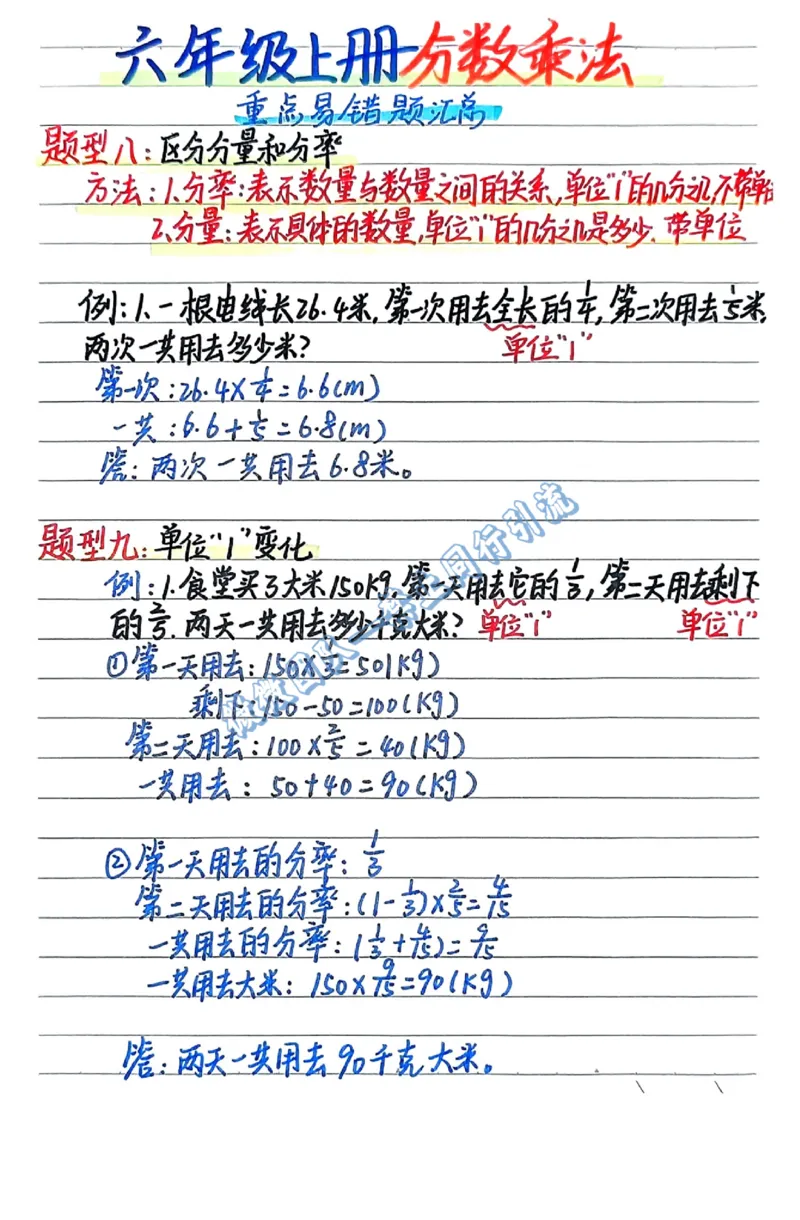 六年级上册分数乘法
重点易错题汇总
题型八:区分分量和分率
方法:1.分率:表示数量与数量之间的关系,单位"1"的几分之几,不带单位
2.分量:表示具体的数量,单位"1"的几分之几是多少.带单位
例:1.一根电线长26.4米,第一次用去全长的1/4,第二次用去1/5米,
两次一共用去多少米?
单位"1"
第一次:26.4×1/4=6.6(m)
一共:6.6+1/5=6.8(m)
答:两次一共用去6.8米。
题型九:单位"1"变化
例:1.食堂买了大米150Kg,第一天用去它的1/3,第二天用去剩下
的2/5.两天一共用去多少千克大米?单位"1" 单位"1"
①第一天用去:150×1/3=50(Kg)
剩下:150-50=100(Kg)
第二天用去:100×2/5=40(Kg)
一共用去:50+40=90(Kg)
②第一天用去的分率:1/3
第二天用去的分率:(1-1/3)×2/5=4/15
一共用去的分率:(1/3+4/15)=9/15
一共用去大米:150×9/15=90(Kg)
答:两天一共用去90千克大米。